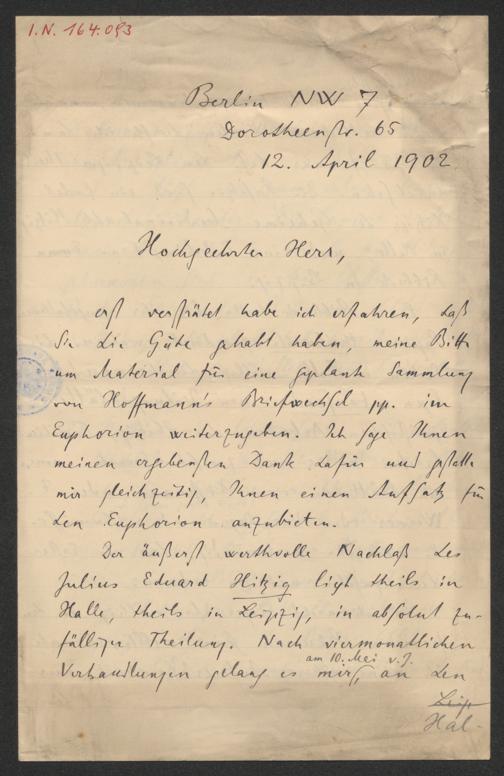 I.N. 164.093
Berlin NW 7
Dorotheenstr. 65
12. April 1902.
Hochgeehrter Herr,
erst verspätet habe ich erfahren, daß
Sie die Güte gehabt haben, meine Bitte
um Material für eine geplante Sammlung
von Hoffmann's Briefwechsel pp. im
Euphorion weiterzugeben. Ich sage Ihnen
meinen ergebensten Dank dafür und gestatte
mir gleichzeitig, Ihnen einen Aufsatz für
den Euphorion anzubieten.
Der äußerst werthvolle Nachlaß des
Julius Eduard Hitzig liegt theils in
Halle, theils in Leipzig, in absolut zu-
fälliger Theilung. Nach viermonatlichen
am 10. Mai v. J.
Verhandlungen gelang es mir, an den
Leip
Hal-